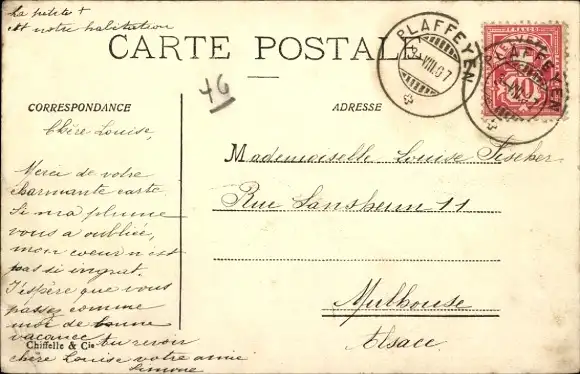 La petite +
est notre habitation
CARTE POSTALE
PLAFFEYEN
VIII.07
PLAFFEYEN
10
46
CORRESPONDANCE
ADRESSE
Chère Louise,
Merci de votre
charmante carte
Si ma plume
vous a oubliée,
mon coeur n'est
pas si ingrat.
J'espère que vous
passez comme
moi de bonne
vacance. Au revoir
chère Louise votre amie
Simone
Chiffelle & Cie
Mademoiselle Louise Fischer
Rue 11
Mulhouse
Alsace